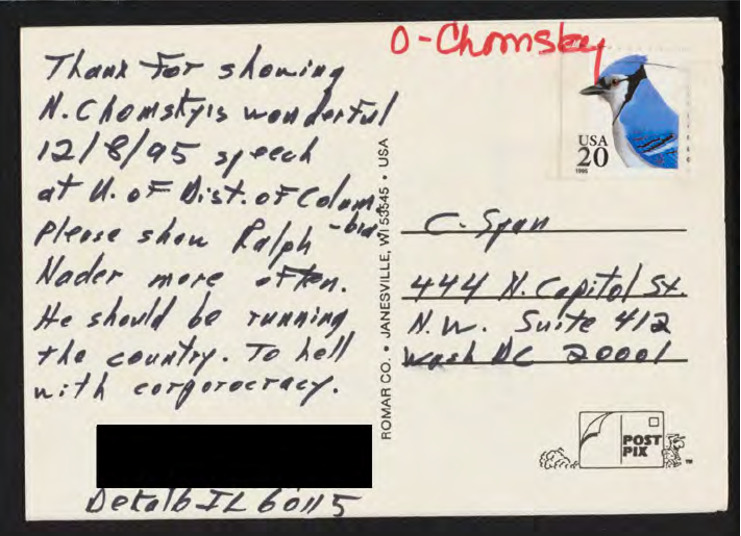 Thank for showing
N. Chomsky's wonderful
12/8/95 speech
at U. of Dist. of Colum-
-bia.
Please show Ralph
Nader more often.
He should be running
the country. To hell
with corporocracy.
Dekalb IL 60115
ROMAR CO. • JANESVILLE, WI 53545 • USA
O-Chomsky
USA
20
1995
C-Span
444 N. Capitol St.
N.W. Suite 412
Wash DC 20001
POST
PIX
TM